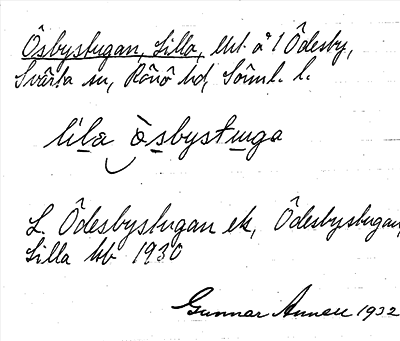 Ôsbystugan, Lilla, lht. å 1 Ôdesby,
Svärta sn, Rönö hd, Söml. l.
lila òsbystuga
L. Ôdesbystugan ek, Ôdesbystugan,
Lilla kb 1930
Gunnar Annell 1932